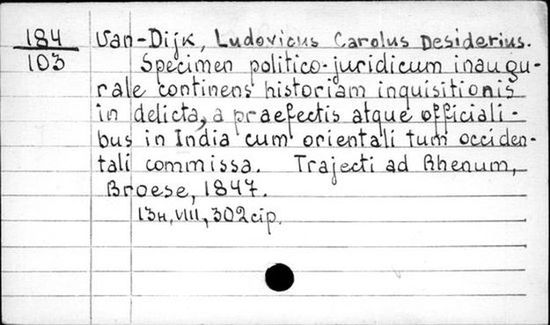 184 Van-Dijk, Ludovicus Carolus Desiderius.
103 Specimen politico-juridicum inaugu-
rale continens historiam inquisitionis
in delicta, a praefectis atque officiali-
bus in India cum orientali tum occiden-
tali commissa. Trajecti ad Rhenum,
Broese, 1847.
13н, VIII, 302 стр.